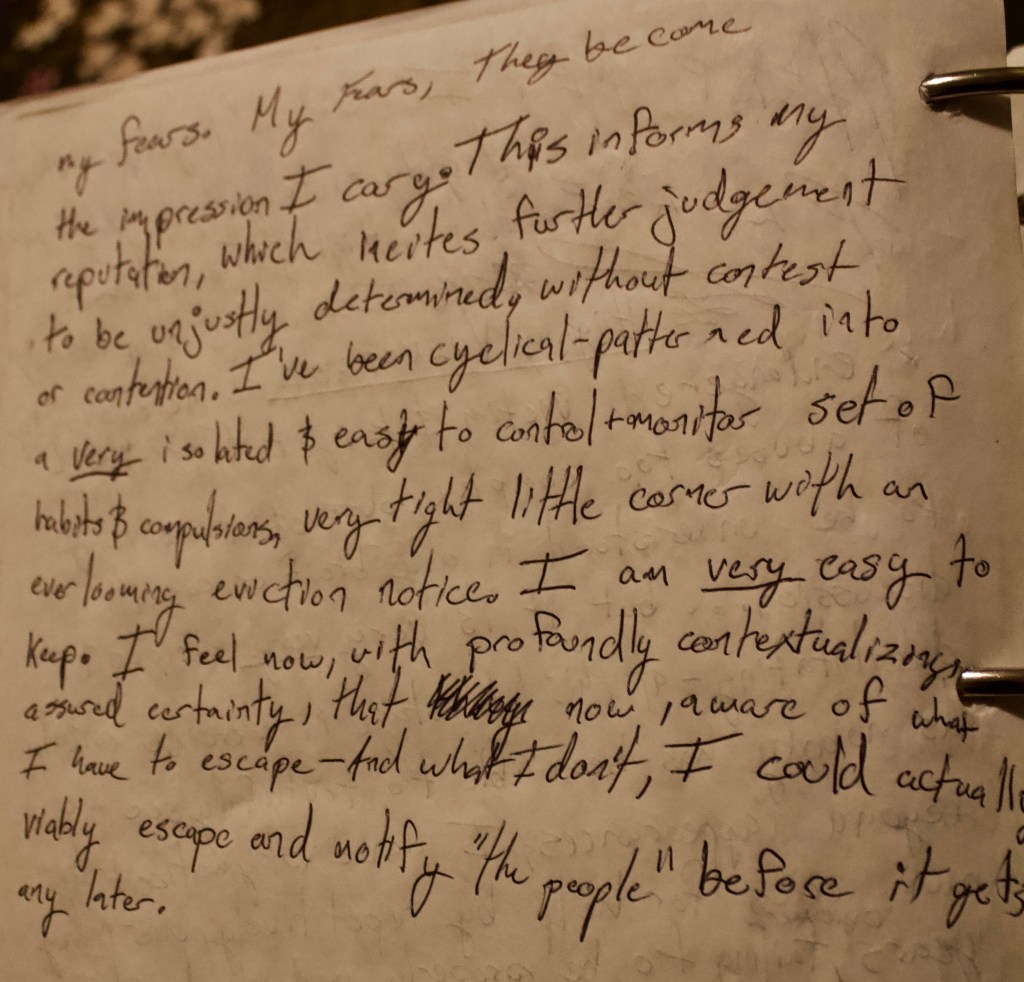 my fears. My Fears, they become
the impression I cary. This informs my
reputation, which incites further judgement
to be unjustly determined, without contest
or contention. I've been cyclical-patterned into
a very isolated & easy to control + monitor set of
habits & compulsions, very tight little corner with an
everlooming eviction notice. I am very easy to
keep. I feel now, with profoundly contextualizing,
assured certainty, that now, aware of what
I have to escape - And what I don't, I could actually
viably escape and notify "the people" before it gets
any later.